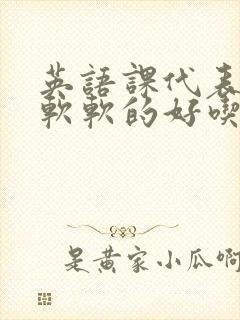 英語課代表
軟軟的好喫
是黃家小瓜啊